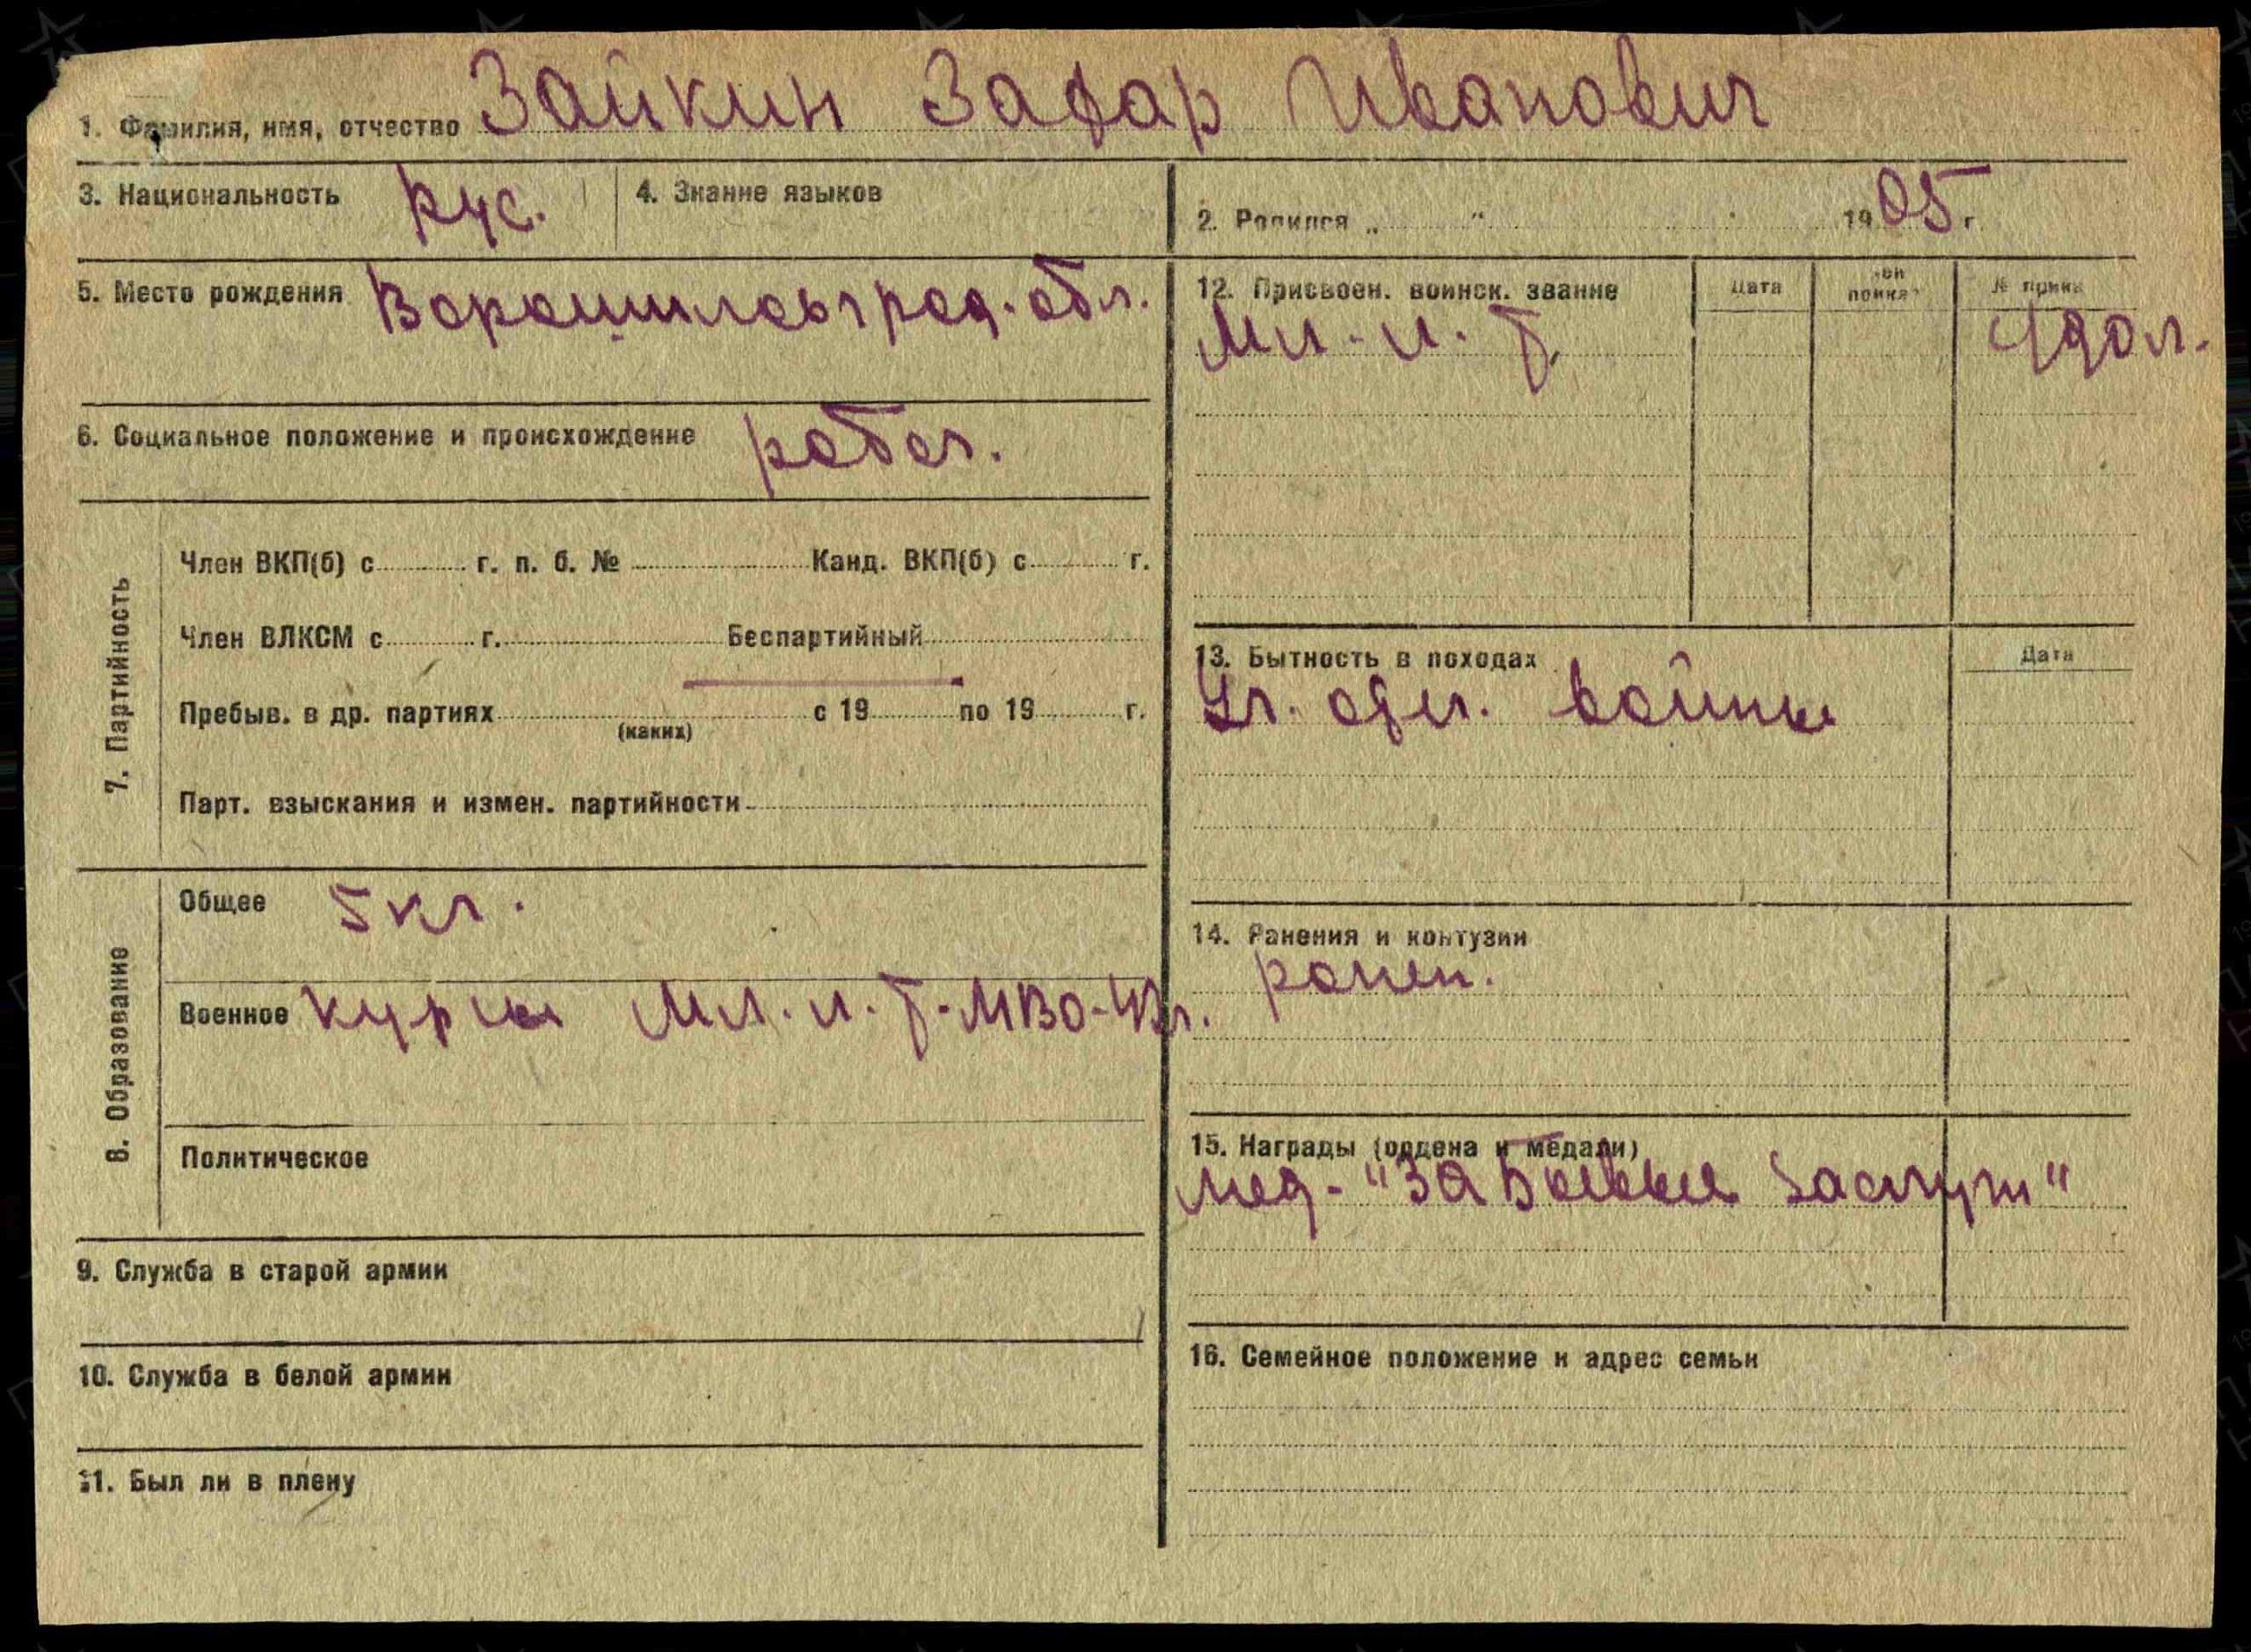 1. Фамилия, имя, отчество Зайкин Захар Иванович
3. Национальность Рус.
4. Знание языков
2. Родился „ " 1905 г.
5. Место рождения Ворошиловград. обл.
6. Социальное положение и происхождение рабоч.
7. Партийность
Член ВКП(б) с г. п. б. № Канд. ВКП(б) с г.
Член ВЛКСМ с г. Беспартийный
Пребыв. в др. партиях с 19 по 19 г.
(каких)
Парт. взыскания и измен. партийности
8. Образование
Общее 5 кл.
Военное Курсы Мл. л. т. МВО-43г.
Политическое
9. Служба в старой армии
10. Служба в белой армии
11. Был ли в плену
12. Присвоен. воинск. звание Дата № прика
Мл. л. т.
13. Бытность в походах Дата
Уч. отеч. войны
14. Ранения и контузии
ранен.
15. Награды (ордена и медали)
мед. "За Боевые Заслуги"
16. Семейное положение и адрес семьи